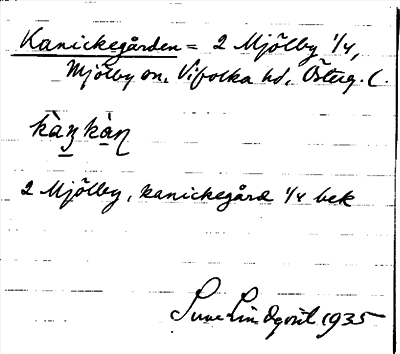 Kanickegården = 2 Mjölby 1/4,
Mjölby sn, Vifolka hd, Österg. l.
2 Mjölby, kanickegård 1/4 bek
Sune Lindqvist 1935